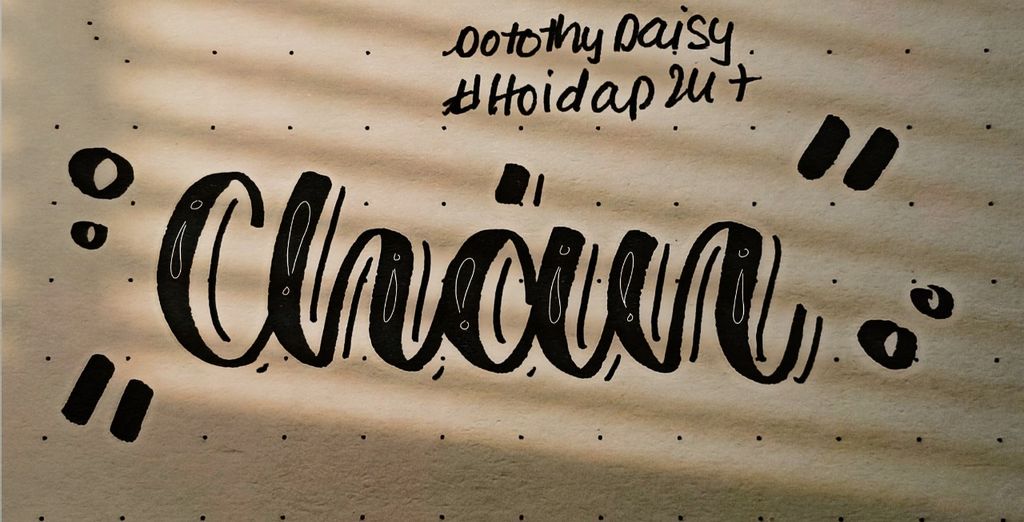 DorothyDaisy
#Hoidap247
Chán